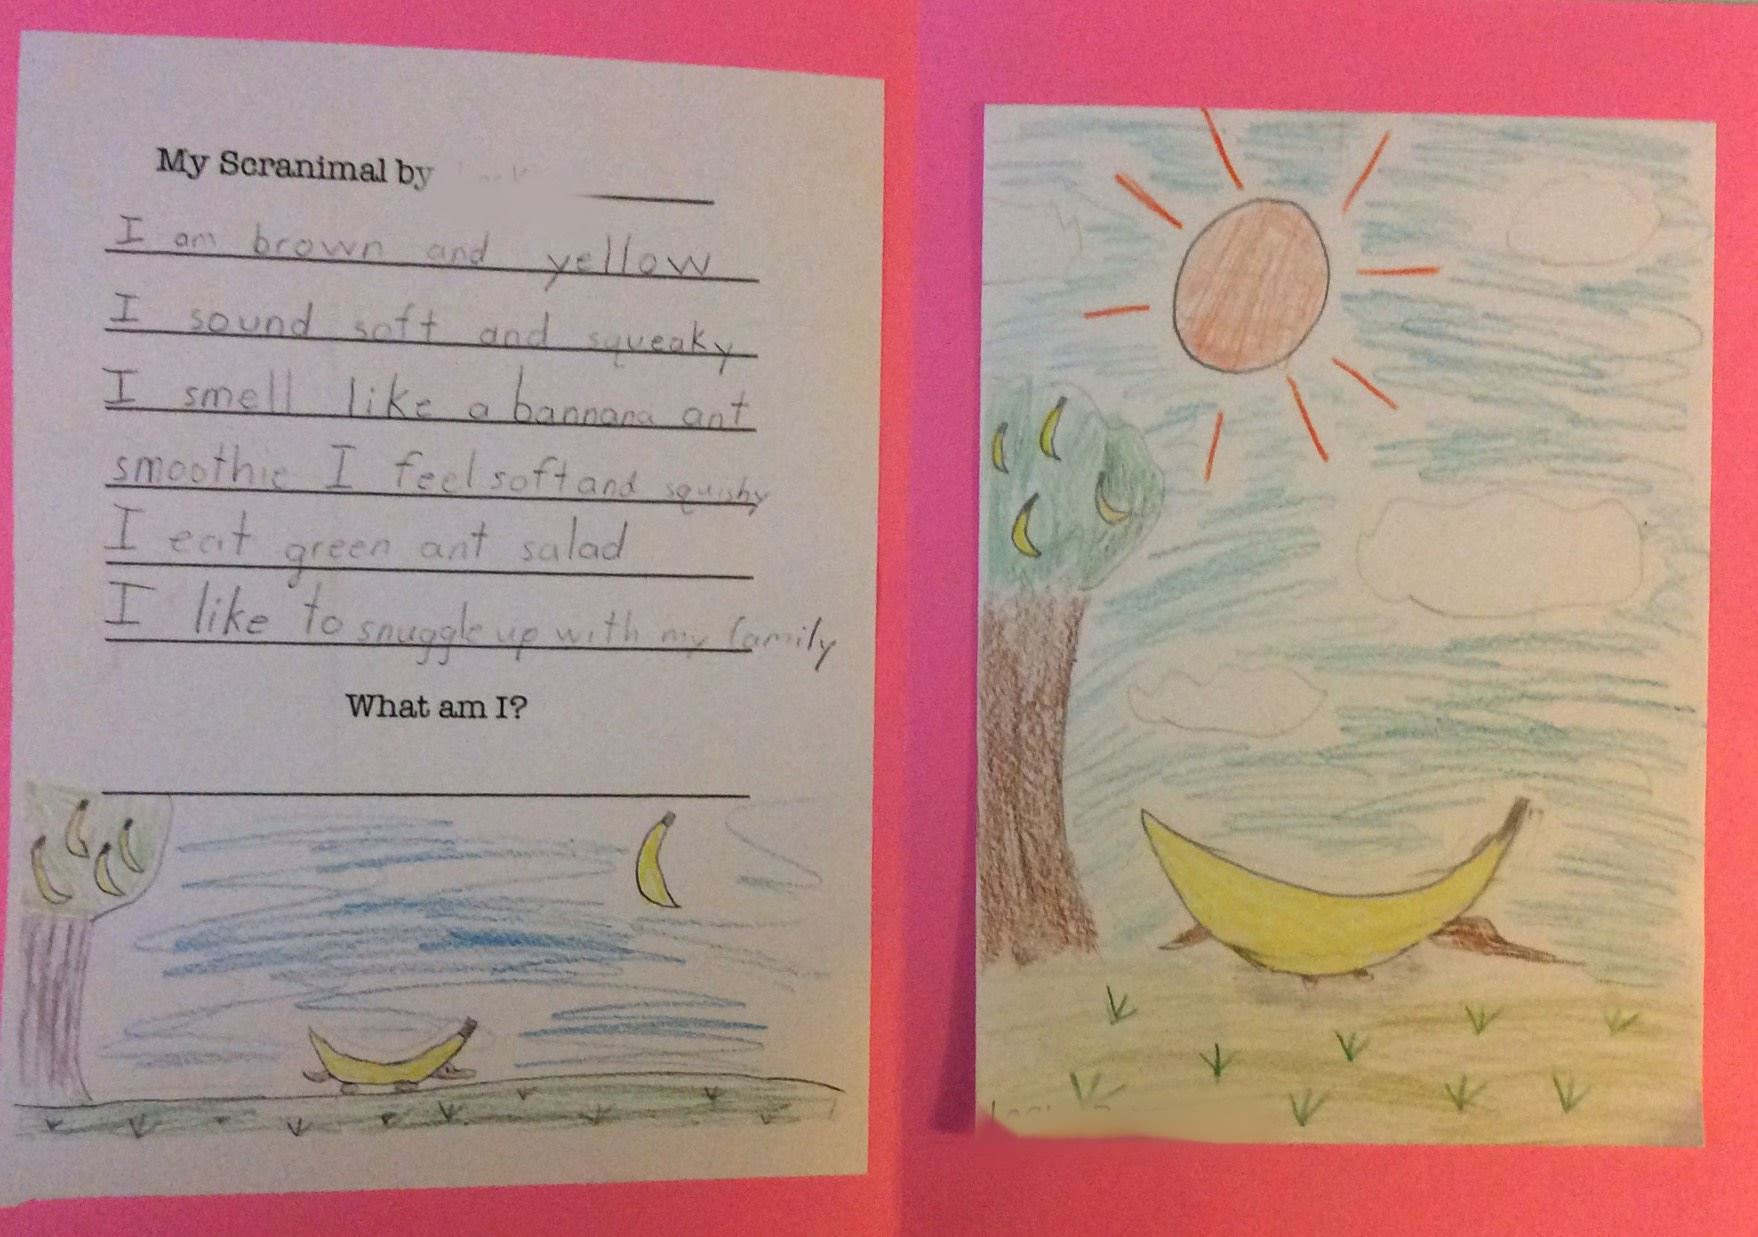 My Scranimal by
I am brown and yellow
I sound soft and squeaky
I smell like a bannana ant
smoothie I feel soft and squishy
I eat green ant salad
I like to snuggle up with my family
What am I?